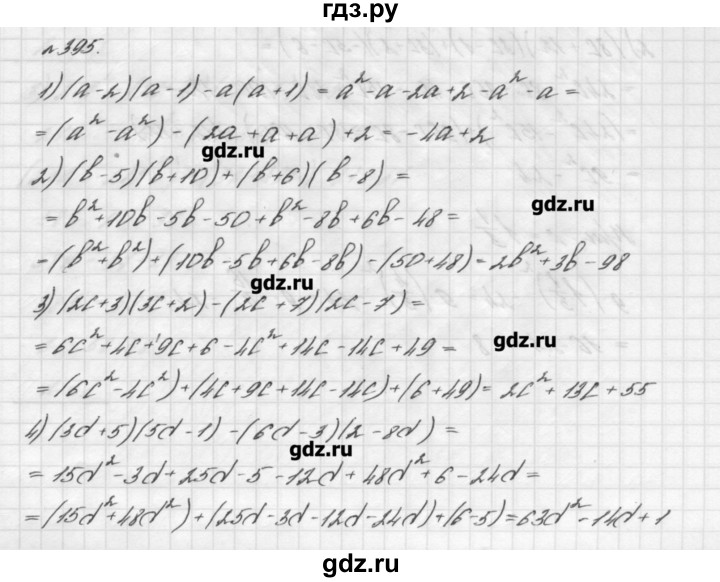 гдз.ру
№395.
1) (a-2)(a-1)-a(a+1)=a²-a-2a+2-a²-a=
=(a²-a²)-(2a+a+a)+2=-4a+2
gdz.ru
2) (b-5)(b+10)+(b+6)(b-8)=
gdz.ru
=b²+10b-5b-50+b²-8b+6b-48=
=(b²+b²)+(10b-5b+6b-8b)-(50+48)=2b²+3b-98
gdz.ru
3) (2c+3)(3c+2)-(2c+7)(2c-7)=
gdz.ru
=6c²+4c+9c+6-4c²+14c-14c+49=
=(6c²-4c²)+(4c+9c+14c-14c)+(6+49)=2c²+13c+55
4) (3d+5)(5d-1)-(6d-3)(2-8d)=
gdz.ru
=15d²-3d+25d-5-12d+48d²+6-24d=
=(15d²+48d²)+(25d-3d-12d-24d)+(6-5)=63d²-14d+1
gdz.ru